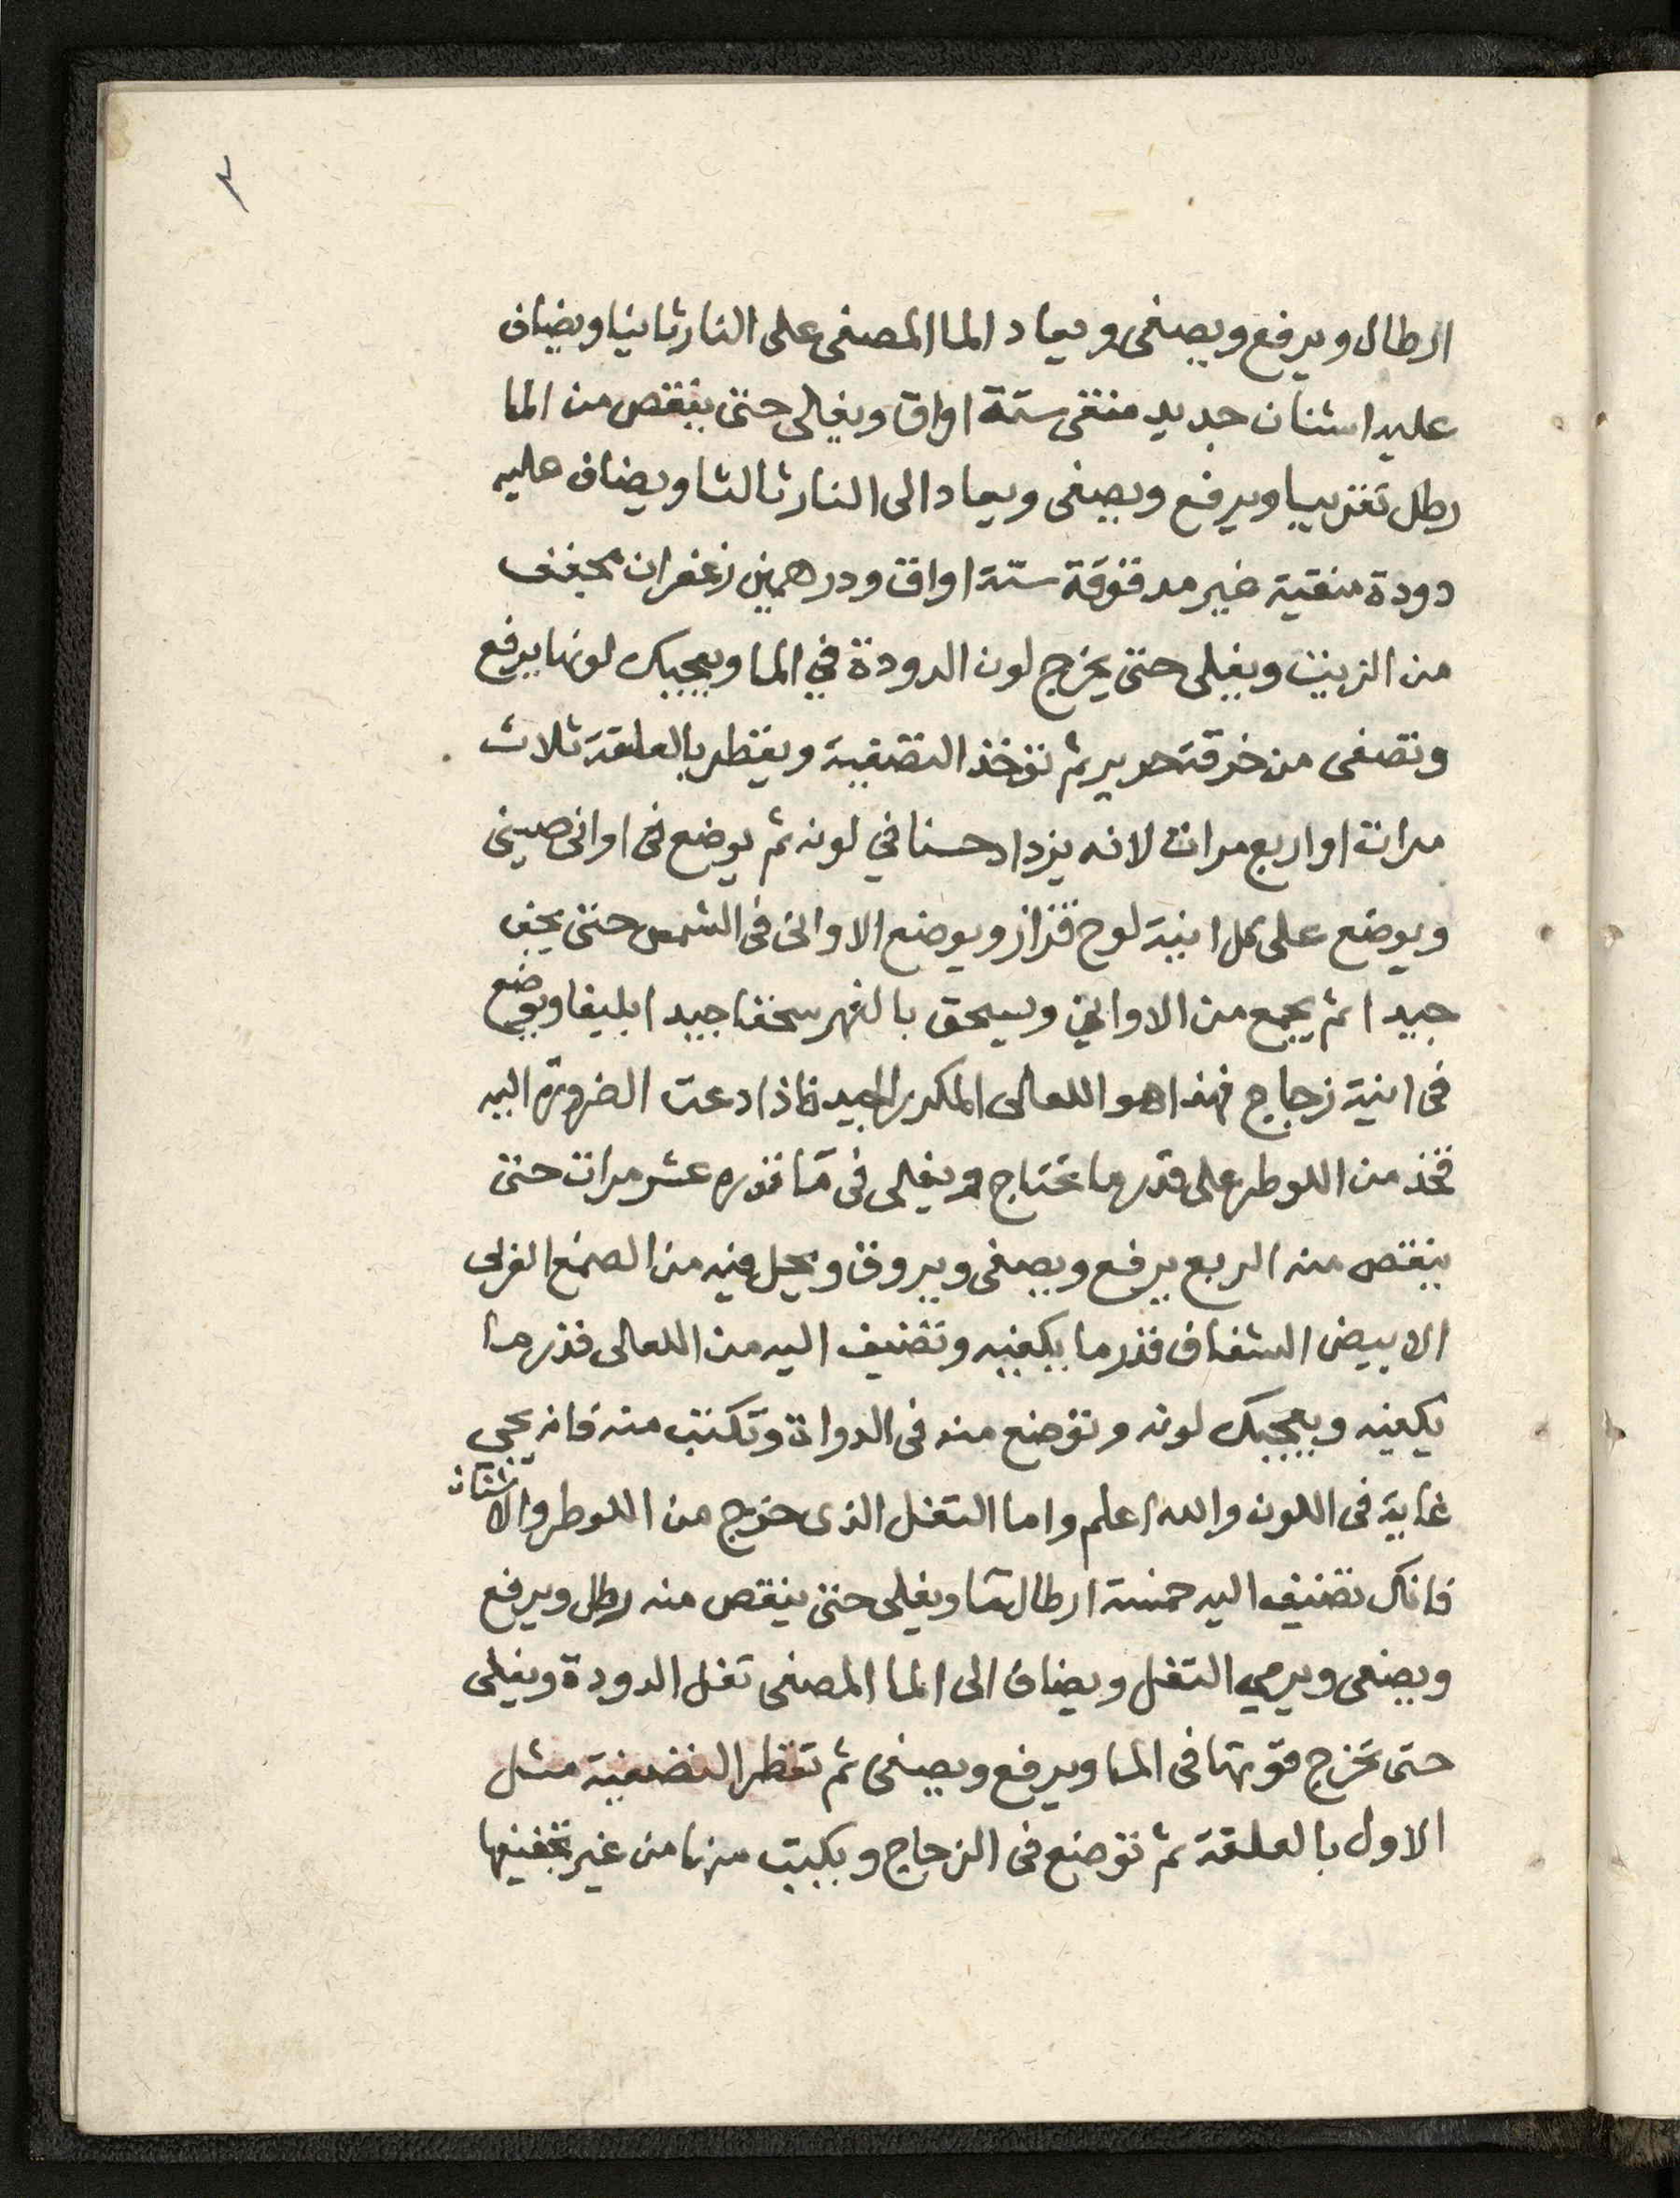 ٣
ارطال ويرفع ويصفى ويعاد الما المصفى على النار ثانيا ويضاف
عليه اشنان جديد منقى ستة اواق ويغلى حتى ينقص من الما
رطل تقريبا ويرفع ويصفى ويعاد الى النار ثالثا ويضاف عليه
دودة منقية غير مدقوقة ستة اواق ودرهمين زعفران مجفف
من الزيت ويغلى حتى يخرج لون الدودة في الما ويعجبك لونها يرفع
وتصفى من خرقة حرير ثم تؤخذ التصفية ويقطر بالعلقة ثلاث
مرات او اربع مرات لانه يزداد حسنا في لونه ثم يوضع فى اوانى صينى
ويوضع على كل انية لوح قزاز ويوضع الاوانى فى الشمس حتى يجف
جيدا ثم يجمع من الاواني ويسحق بالفهر سحقا جيدا بليغا ويوضع
فى انية زجاج فهذا هو اللعالى المكرر الجيد فاذا دعت الضرورة اليه
فخذ من اللوطر على قدر ما تحتاج ويغلى فى ما قدره عشر مرات حتى
ينقص منه الربع يرفع ويصفى ويروق ويحل فيه من الصمغ العربى
الابيض الشفاف قدر ما يكفيه وتضيف اليه من اللعالى قدر ما
يكفيه ويعجبك لونه وتوضع منه فى الدواة وتكتب منه فانه يجي
غاية فى اللون والله اعلم واما التفل الذى خرج من اللوطر والاشنان
فانك تضيف اليه خمسة ارطال ما ويغلى حتى ينقص منه رطل ويرفع
ويصفى ويرمي التفل ويضاف الى الما المصفى تفل الدودة ويغلى
حتى تخرج قوتها فى الما ويرفع ويصفى ثم تقطر التصفية مثل
الاول بالعلقة ثم توضع فى الزجاج ويكتب منها من غير تجفيفها